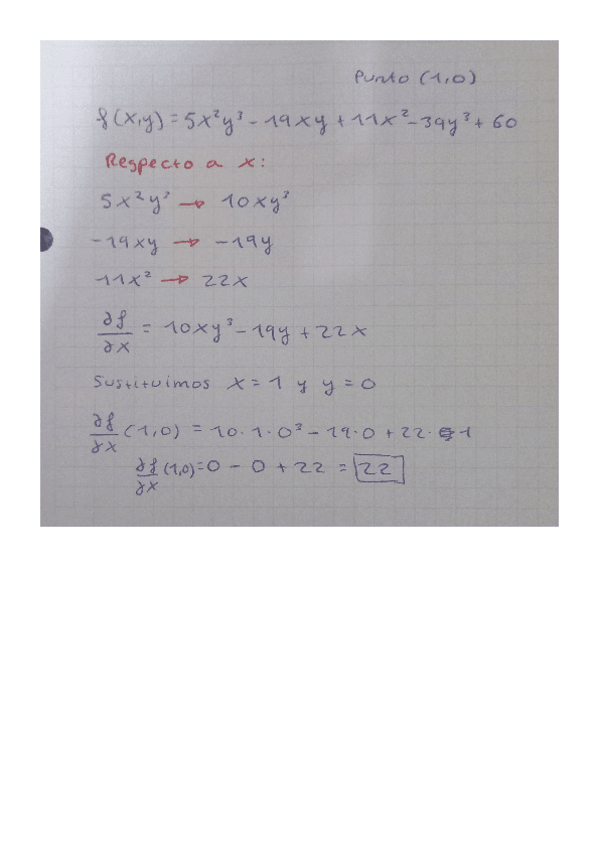 Punto (1,0)
f(x,y) = 5x²y³ - 19xy + 11x² - 39y³ + 60
Respecto a x:
5x²y³ → 10xy³
-19xy → -19y
11x² → 22x
∂f/∂x = 10xy³ - 19y + 22x
Sustituimos x = 1 y y = 0
∂f/∂x (1,0) = 10·1·0³ - 19·0 + 22·1
∂f/∂x (1,0) = 0 - 0 + 22 = 22